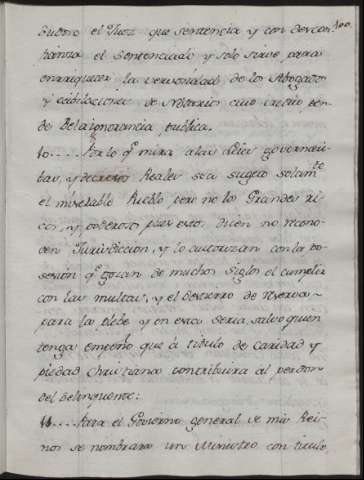 dudoso el Juez que sentencia y con descon
fianza el Sentenciado y solo sirve para
enriquecer la venalidad de los Abogados
y cabilaciones de Notarios cuio credito pen
de de la ignorancia publica.
10.... Por lo q.e mira a las Leies governati
bas, y decretos Reales sea sugeto solam.te
el miserable Pueblo pero no los Grandes ri
cos, y poderosos pues estos dicen no recono
cen Jurisdiccion, y lo autorizan con la po
sesion q.e gozan de muchos siglos el cumplir
con las multas, y el destierro de
para la plebe y en esta seria, salvo quien
tenga empeño que à titulo de caridad y
piedad Christiana contribuira al perdon
del delinquente:
11.... Para el Govierno general de mis Rei
nos se nombrara un Ministro con titulo